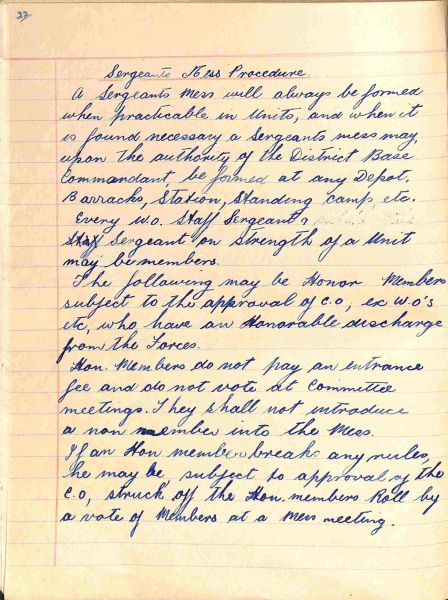 22
Sergeants Mess Procedure.
A Sergeants Mess will always be formed
when practicable in Units, and when it
is found necessary a Sergeants mess may,
upon the authority of the District Base
Commandant, be formed at any Depot,
Barracks, Station, Standing camp, etc.
Every W.O. Staff Sergeant &
Sergeant on strength of a Unit
may be members.
The following may be Honor Members
subject to the approval of C.O, ex W.O's
etc, who have an Honorable discharge
from the Forces.
Hon. Members do not pay an entrance
fee and do not vote at Committee
meetings. They shall not introduce
a non member into the Mess.
If an Hon member breaks any rules,
he may be, subject to approval of the
C.O, struck off the Hon. members Roll by
a vote of Members at a Mess meeting.